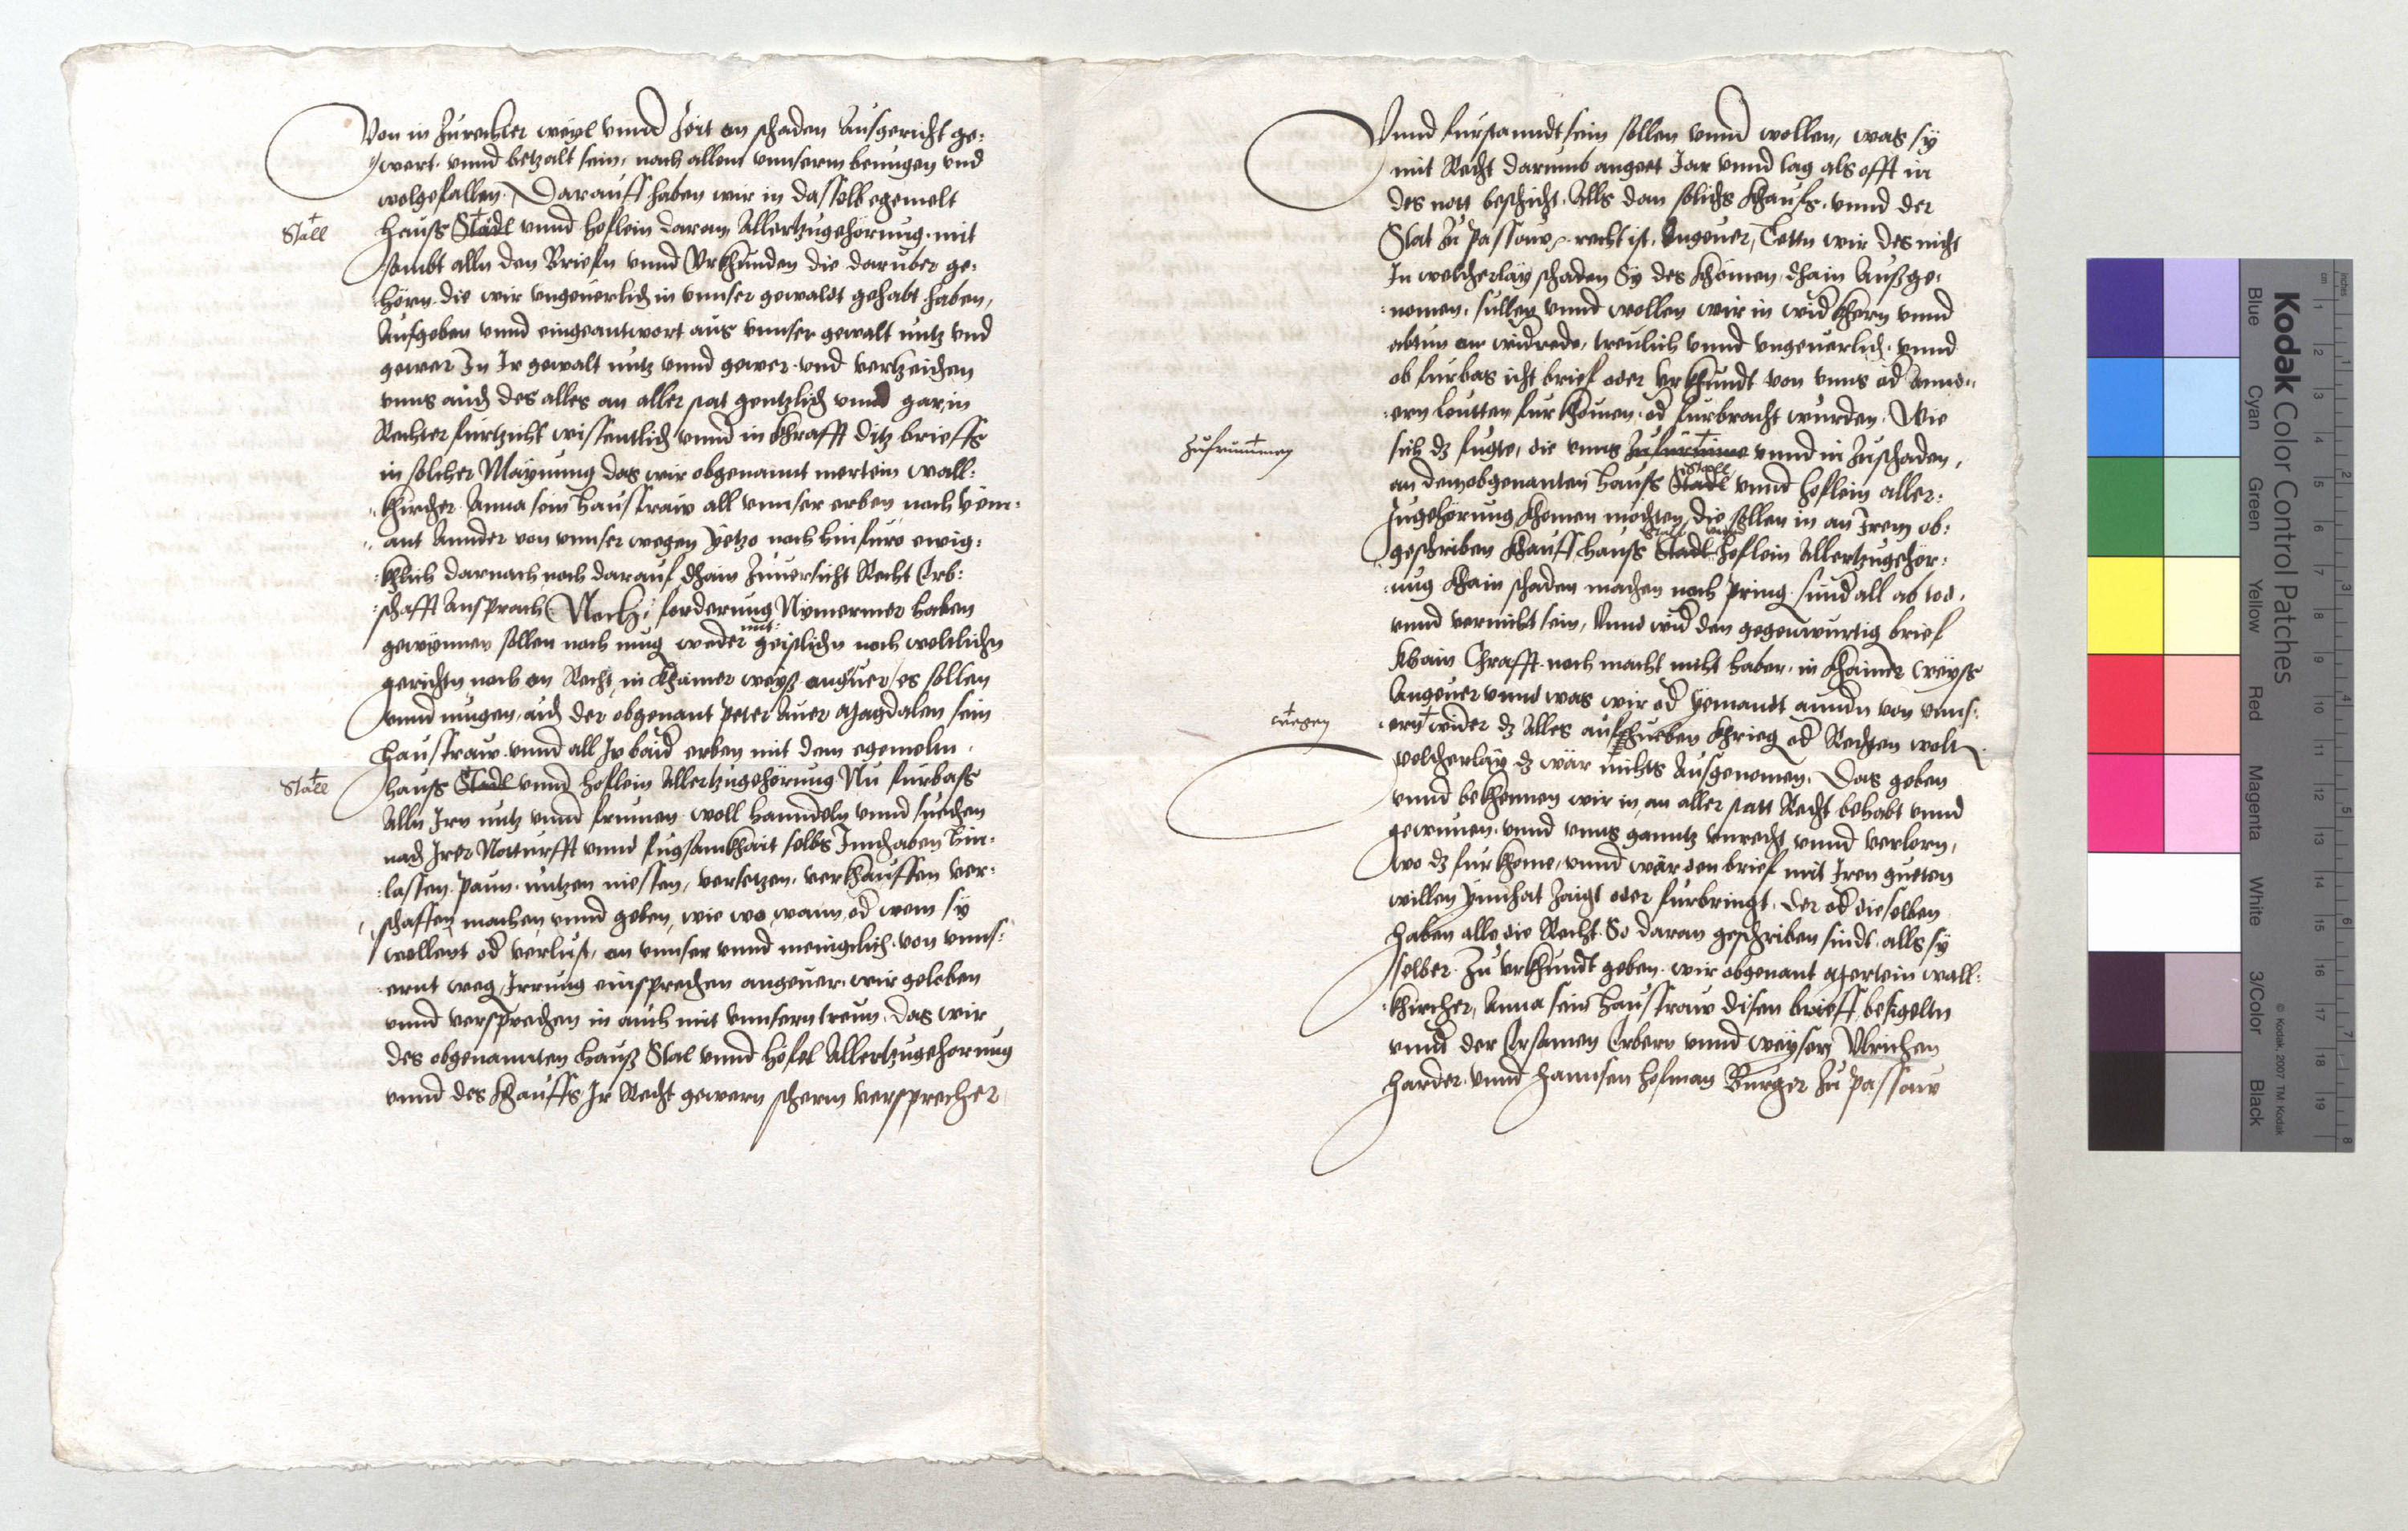 Von in zurechter weyl vnnd zeit on schaden Ausgericht ge:
wert. vnnd betzalt sein, nach allem vnnserm benugen vnd
wolgefallen. Darauff haben wir in dasselb egemelt
Stall
hauss Stadl vnnd hoflein daran Allertzugehörung. mit
sambt alln den Briefn vnnd Vrkhunden die daruber ge:
:hörn. die wir vngeuerlich in vnnser gewaldt gehabt haben,
Aufgeben vnnd eingeantwort aus vnnser gewalt nutz vnd
gewer In Ir gewalt nutz vnnd gewer. vnd vertzeichen
vnns auch des alles an aller stat gentzlich vnnd gar in
Rechter furtzicht wissentlich vnnd in khrafft ditz brieffs
in solcher Maynung das wir obgenannt mertein wall:
:khircher. Anna sein haussfraw all vnnser erben noch yem:
:ant Annder von vnnser wegen yetzo noch hinfuro ewig:
:khlich darnach noch darauf khain zuuersicht Recht Erb:
:schafft Ansprach Noch forderung Nymermer haben
gewynnen sollen noch mug weder mit geistlichn noch weltlichn
gerichtn noch on Recht, in khainer weyß angeuer, es sollen
vnnd mugen, auch der obgenant peter Auer Magdalen sein
haussfraw vnnd all Ir baid erben mit dem egemeltn.
Stall
hauss Stadl vnnd hoflein Allertzugehörung Nu furbass
Alln Irn nutz vnnd frumen woll hanndeln vnnd suechen
nach Irer Notturfft vnnd fugsamkhait selbs Innhaben hin:
:lassen. paun. nutzen niessen, versetzen. verkhauffen ver:
:schaffen machen vnnd geben, wie wo, wann, od wem sy
wollent od verlust, on vnnser vnnd menigclich von vnns:
:ernt weg, Irrung einsprechen angeuer. wir geloben
vnnd versprechen in auch mit vnnsern treun. das wir
des obgenannten hauß Stal vnnd höfel Allertzugehorung
vnnd des khauffs Ir Recht gewern scherm versprecher
Vnnd furstanndt sein sollen vnnd wollen, was sy
mit Recht darumb angeet Jar vnnd tag als offt in
des nott beschicht. Alls dan solichs khaufs. vnnd der
Stat zu passaw recht ist. Angeuer, Tettn wir des nicht
In welcherlay schaden Sy des khömen, khain Außge:
:nomen. sullen vnnd wollen wir in wid khern vnnd
abtun on widrede, treulich vnnd vngeuerlich. vnnd
ob furbas icht brief oder vrkhundt von vnns od Annd:
:ern leutten fur khomen. od furbracht wurden. Wie
zufrummen
sich dz fugte, die vnns vnnd in zuschaden,
an dem obgenanten hauss Stadl Stall vnnd hoflein aller:
zugehörung khomen mochten, die sollen in an Irem ob:
geschriben khauff hauss Stadl Stall vnnd hoflein Allertzugehör:
:ung khain schaden machen noch pring. sund all ab tod.
vnnd vernicht sein, Vnnd wid den gegenwurtig brief
khain Chrafft noch macht nicht haben. in khainer weyss
Angeuer vnnd was wir od yemandt anndn von vnns:
wegen
:ern wider dz Alles aufhueben khrieg od Rechten wolt
welcherlay dz wär nichts Ausgenomen. Das geben
vnnd bekhennen wir in, an aller statt Recht behabt vnnd
gewunen. vnnd vnns ganntz vnrecht vnnd verlorn,
wo dz fur khome, vnnd wär den brief mit Iren gueten
willen ynnhat zaigt oder furbringt. der od dieselben
haben alle die Recht. So daran geschriben sindt. alls sy
selber. Zu vrkhundt geben. wir obgenant Mertein wall:
:khircher, Anna sein haussfraw disen brieff besigeltn
vnnd der Ersamen Erbern vnnd weysen Vlrichen
harder. vnnd hannsen hofman Burger zu passaw
Kodak Color Control Patches
Blue Cyan Green Yellow Red Magenta White 3/Color Black
© Kodak, 2007 TM: Kodak
cm 1 2 3 4 5 6 7 8 9 10 11 12 13 14 15 16 17 18 19
inches 1 2 3 4 5 6 7 8